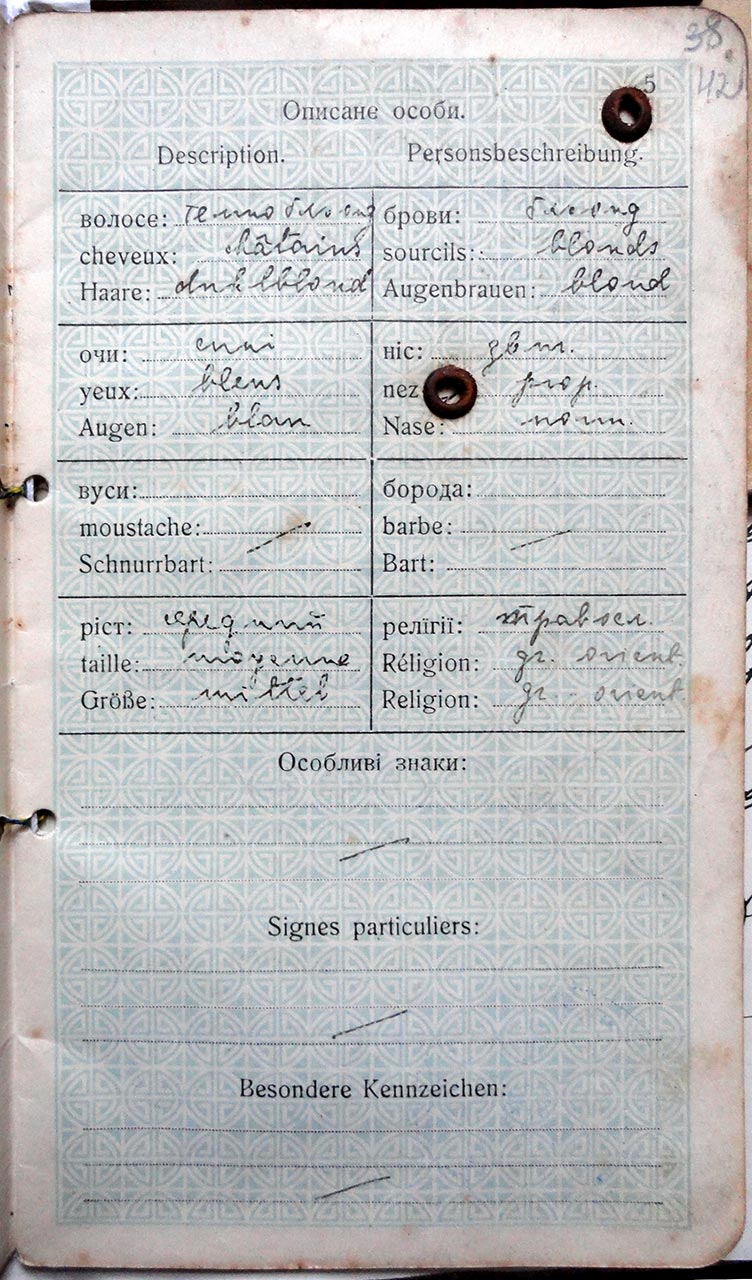 38.
42
5
Описанє особи.
Description. Personsbeschreibung.
волосе: темноблонд
cheveux: châtains
Haare: dnklblond
брови: блонд
sourcils: blonds
Augenbrauen: blond
очи: сині
yeux: bleus
Augen: blau
ніс:
nez prop.
Nase: norm.
вуси:
moustache:
Schnurrbart:
борода:
barbe:
Bart:
ріст: середний
taille: moyenne
Größe: mittel
релїгії: правосл.
Réligion: gr. orient.
Religion: gr. orient.
Особливі знаки:
Signes particuliers:
Besondere Kennzeichen: